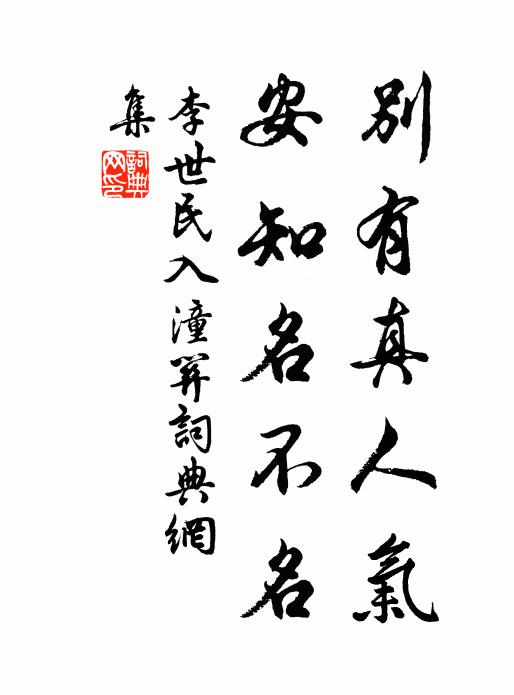 別有真人氣
安知名不名
李世民入潼關詞典網
集
詞典
网印